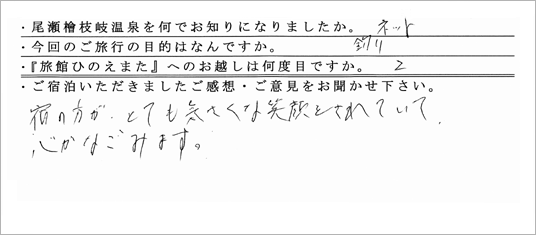 ・尾瀬檜枝岐温泉を何でお知りになりましたか。 ネット
・今回のご旅行の目的はなんですか。 釣り
・『旅館ひのえまた』へのお越しは何度目ですか。 2
・ご宿泊いただきましたご感想・ご意見をお聞かせ下さい。
宿の方が、とても気さくな笑顔をされていて、
心がなごみます。